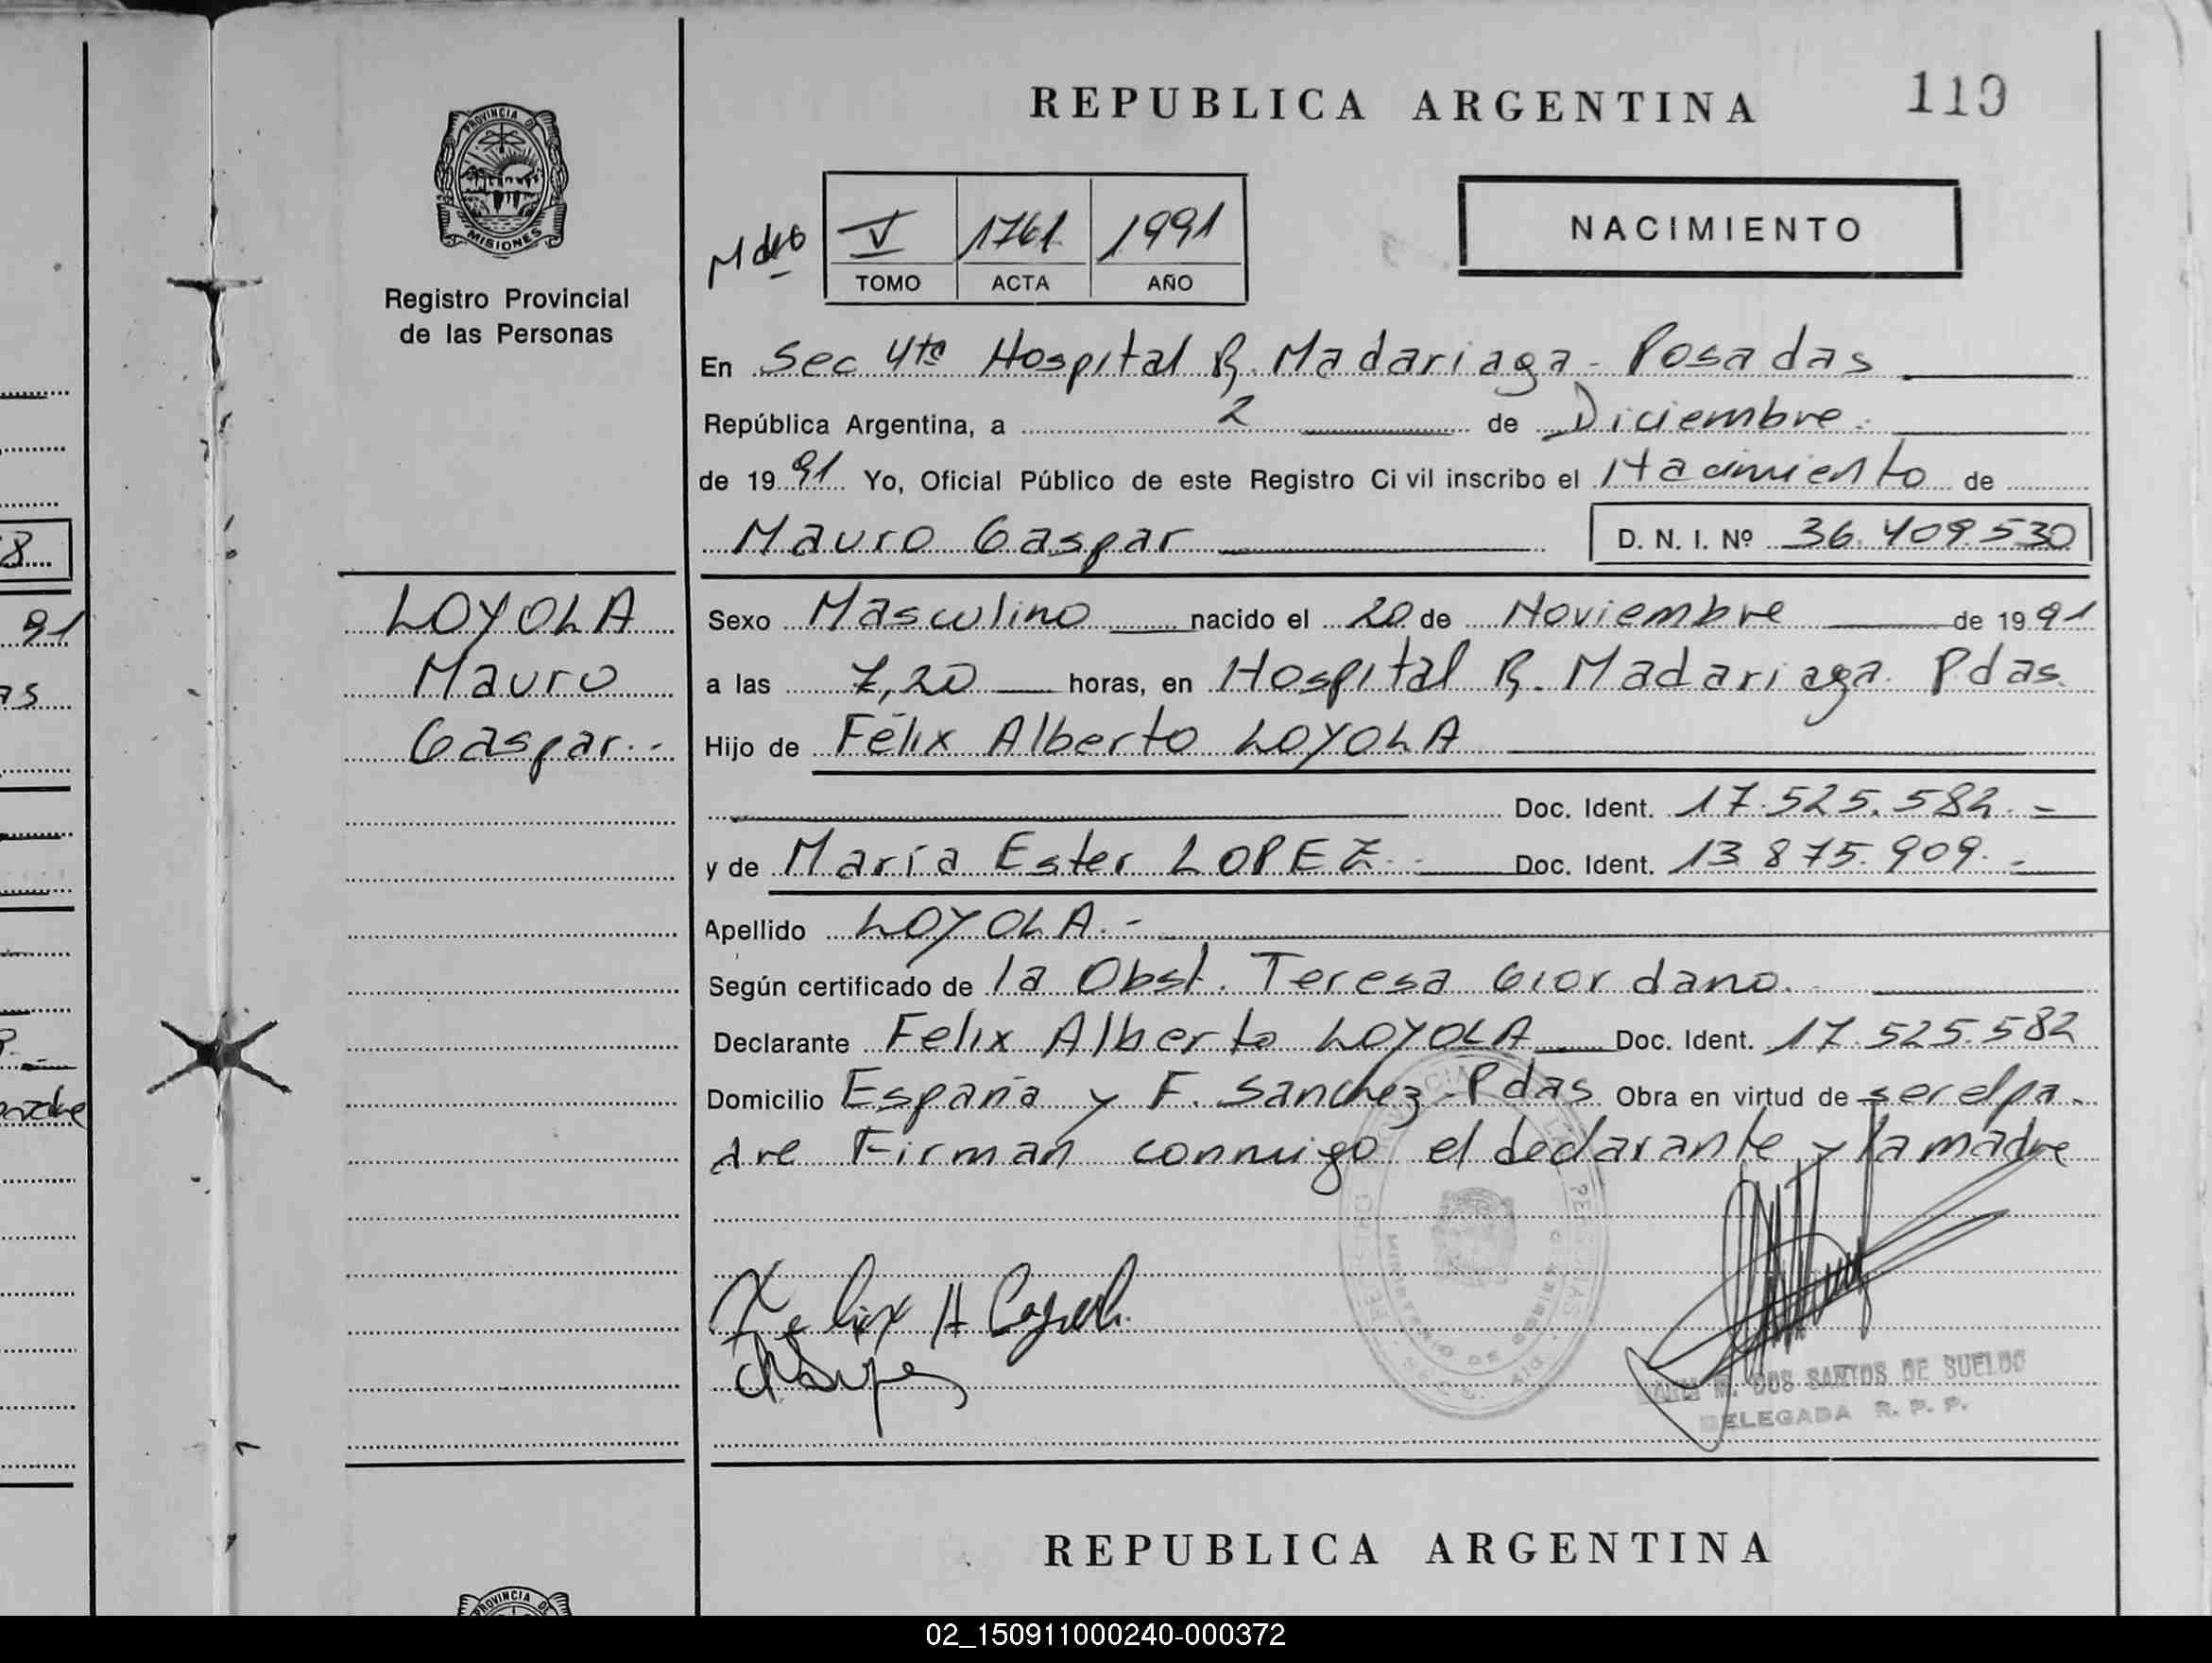 REPUBLICA ARGENTINA
119
PROVINCIA DE
MISIONES
Registro Provincial
de las Personas
V 1761 1991
TOMO ACTA AÑO
NACIMIENTO
En Sec 4ta Hospital R. Madariaga - Posadas
República Argentina, a 2 de Diciembre.
de 1991 Yo, Oficial Público de este Registro Civil inscribo el Nacimiento de
Mauro Gaspar D. N. I. Nº 36.409.530
LOYOLA
Mauro
Gaspar.-
Sexo Masculino nacido el 20 de Noviembre de 1991
a las 7,20 horas, en Hospital R. Madariaga Pdas.
Hijo de Félix Alberto LOYOLA
Doc. Ident. 17.525.582.-
y de María Ester LOPEZ.- Doc. Ident. 13.875.909.-
Apellido LOYOLA.-
Según certificado de la Obst. Teresa Giordano.
Declarante Felix Alberto LOYOLA Doc. Ident. 17.525.582
Domicilio España y F. Sanchez - Pdas Obra en virtud de ser el pa-
dre Firman conmigo el declarante y la madre
Felix A
M. DOS SANTOS DE SUELDO
DELEGADA R. P. P.
REPUBLICA ARGENTINA
PROVINCIA DE
02_150911000240-000372